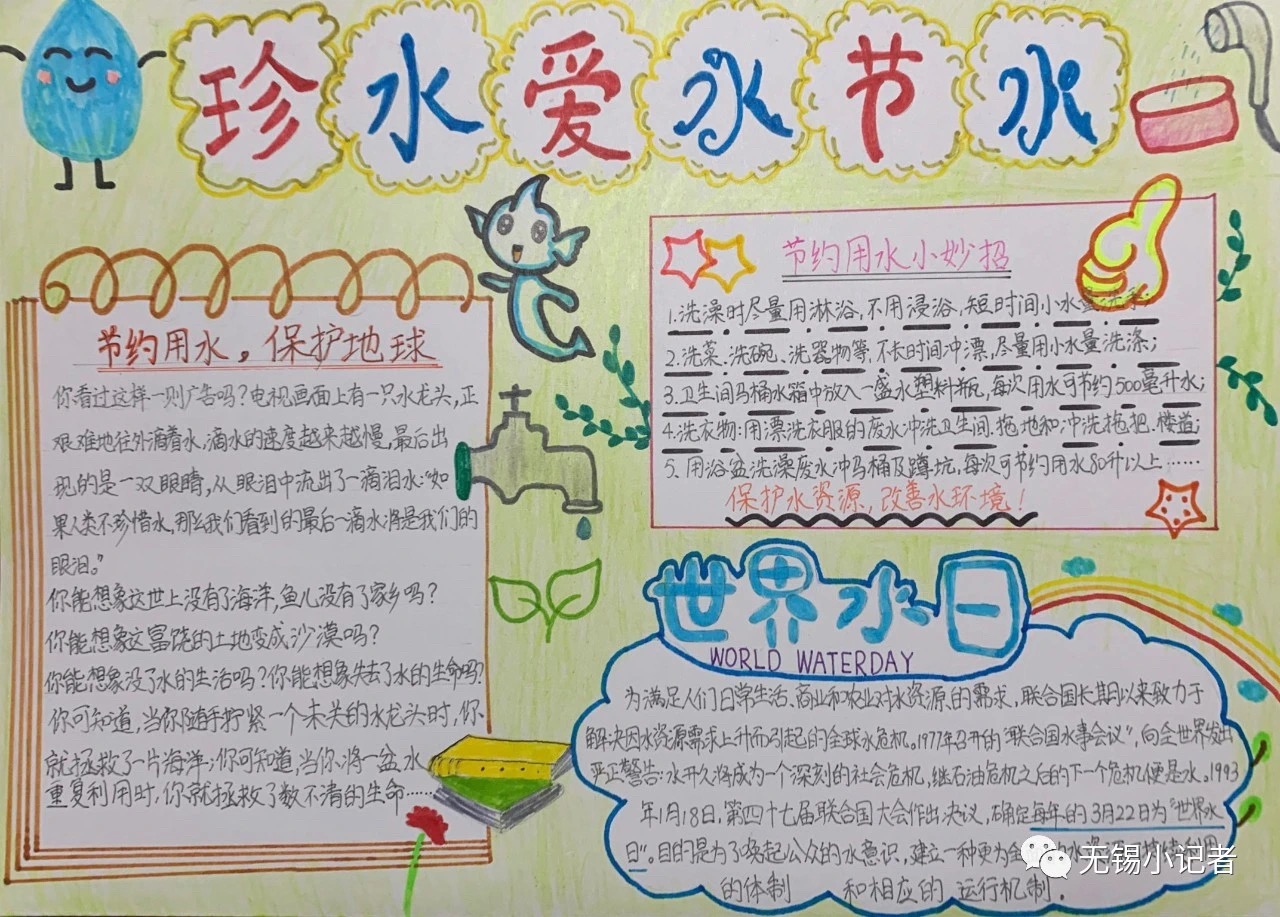 珍水爱水节水
节约用水。保护地球
你看过这样一则广告吗？电视画面上有一只水龙头，正
艰难地往外滴着水，滴水的速度越来越慢，最后出
现的是一双眼睛，从眼泪中流出了一滴泪水：“如
果人类不珍惜水，那么我们看到的最后一滴水将是我们的
眼泪。”
你能想象这世上没有了海洋，鱼儿没有了家乡吗？
你能想象这富饶的土地变成沙漠吗？
你能想象没了水的生活吗？你能想象失去了水的生命吗？
你可知道，当你随手拧紧一个未关的水龙头时，你
就拯救了一片海洋；你可知道，当你将一盆水
重复利用时，你就拯救了数不清的生命……
节约用水小妙招
1.洗澡时尽量用淋浴，不用浸浴，短时间小水量洗
2.洗菜、洗碗、洗器物等，不长时间冲漂，尽量用小水量洗涤；
3.卫生间马桶水箱中放入一盛水塑料瓶，每次用水可节约500毫升水；
4.洗衣物：用漂洗衣服的废水冲洗卫生间、拖地和冲洗拖把、楼道；
5.用浴盆洗澡废水冲马桶及蹲坑，每次可节约用水80升以上……
保护水资源，改善水环境！
世界水日
WORLD WATERDAY
为满足人们日常生活、商业和农业对水资源的需求，联合国长期以来致力于
解决因水资源需求上升而引起的全球水危机。1977年召开的“联合国水事会议”，向全世界发出
严正警告：水不久将成为一个深刻的社会危机，继石油危机之后的下一个危机便是水。1993
年1月18日，第四十七届联合国大会作出决议，确定每年的3月22日为“世界水
日”。目的是为了唤起公众的水意识，建立一种更为全
的体制 和相应的运行机制.
无锡小记者